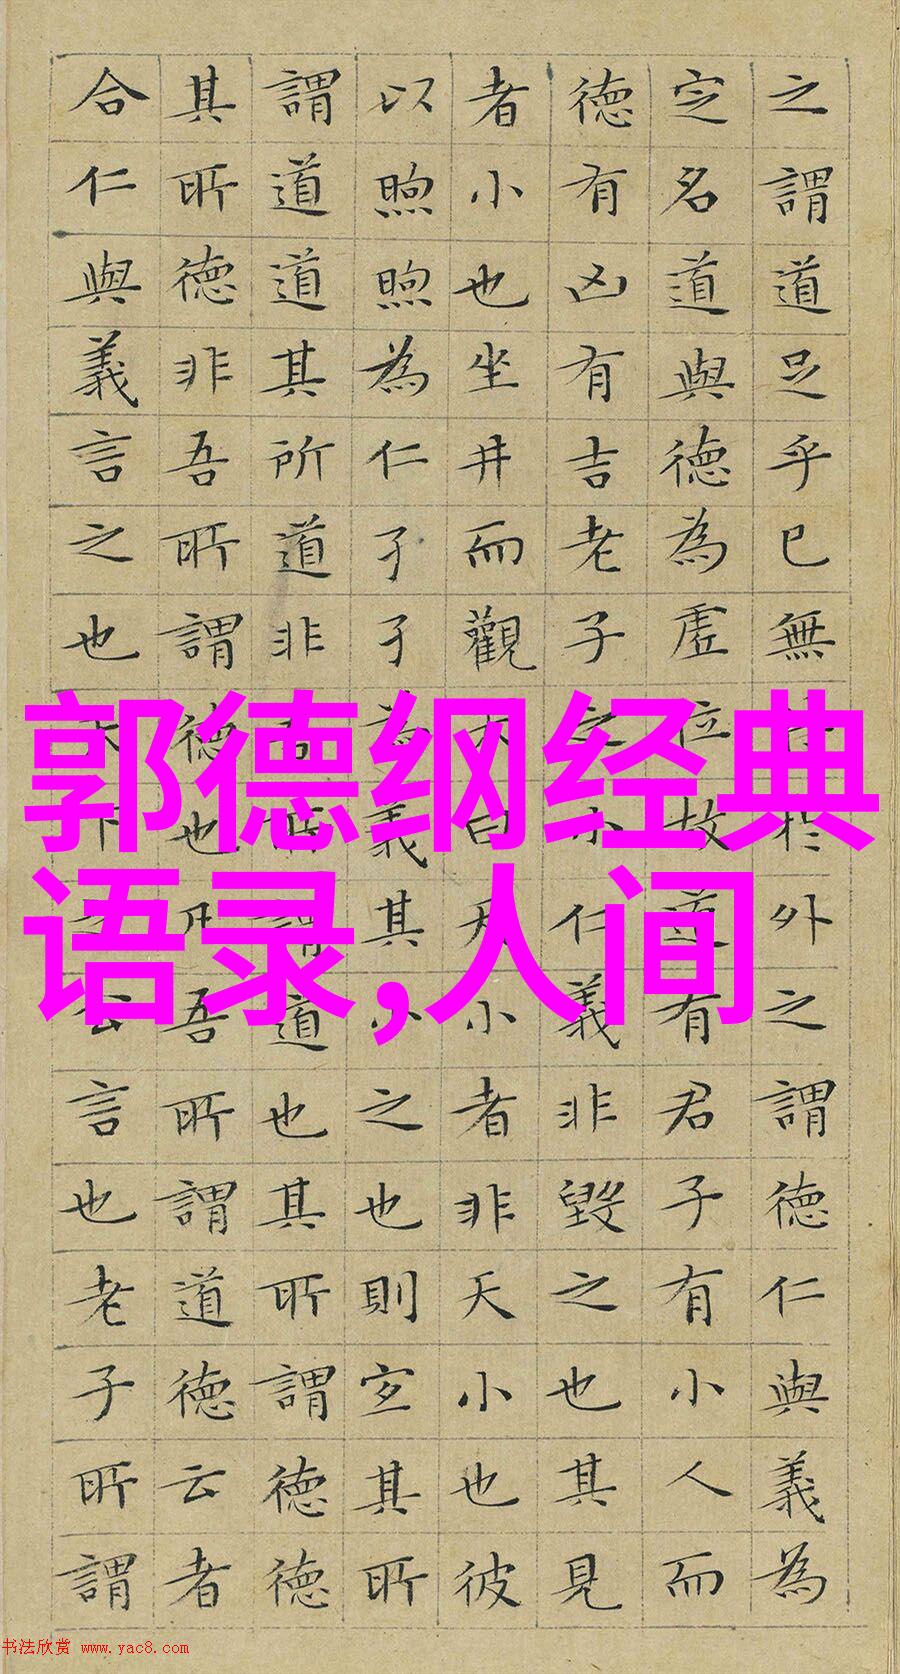 之謂道足乎已無於外之謂德仁與義為
定名道與德為虛位故道有君子有小人而
德有凶有吉老子之小仁義非毀之也其見
者小也坐井而觀天曰天小者非天小也彼
以煦煦為仁孑孑為義其小之也則宜其所
謂道道其所道非吾所謂道也其所謂德德
其所德非吾所謂德也凡吾所謂道德云者
合仁與義言之也天下之公言也老子所謂
郭德纲经典
语录,人间
书法欣赏 www.yac8.com